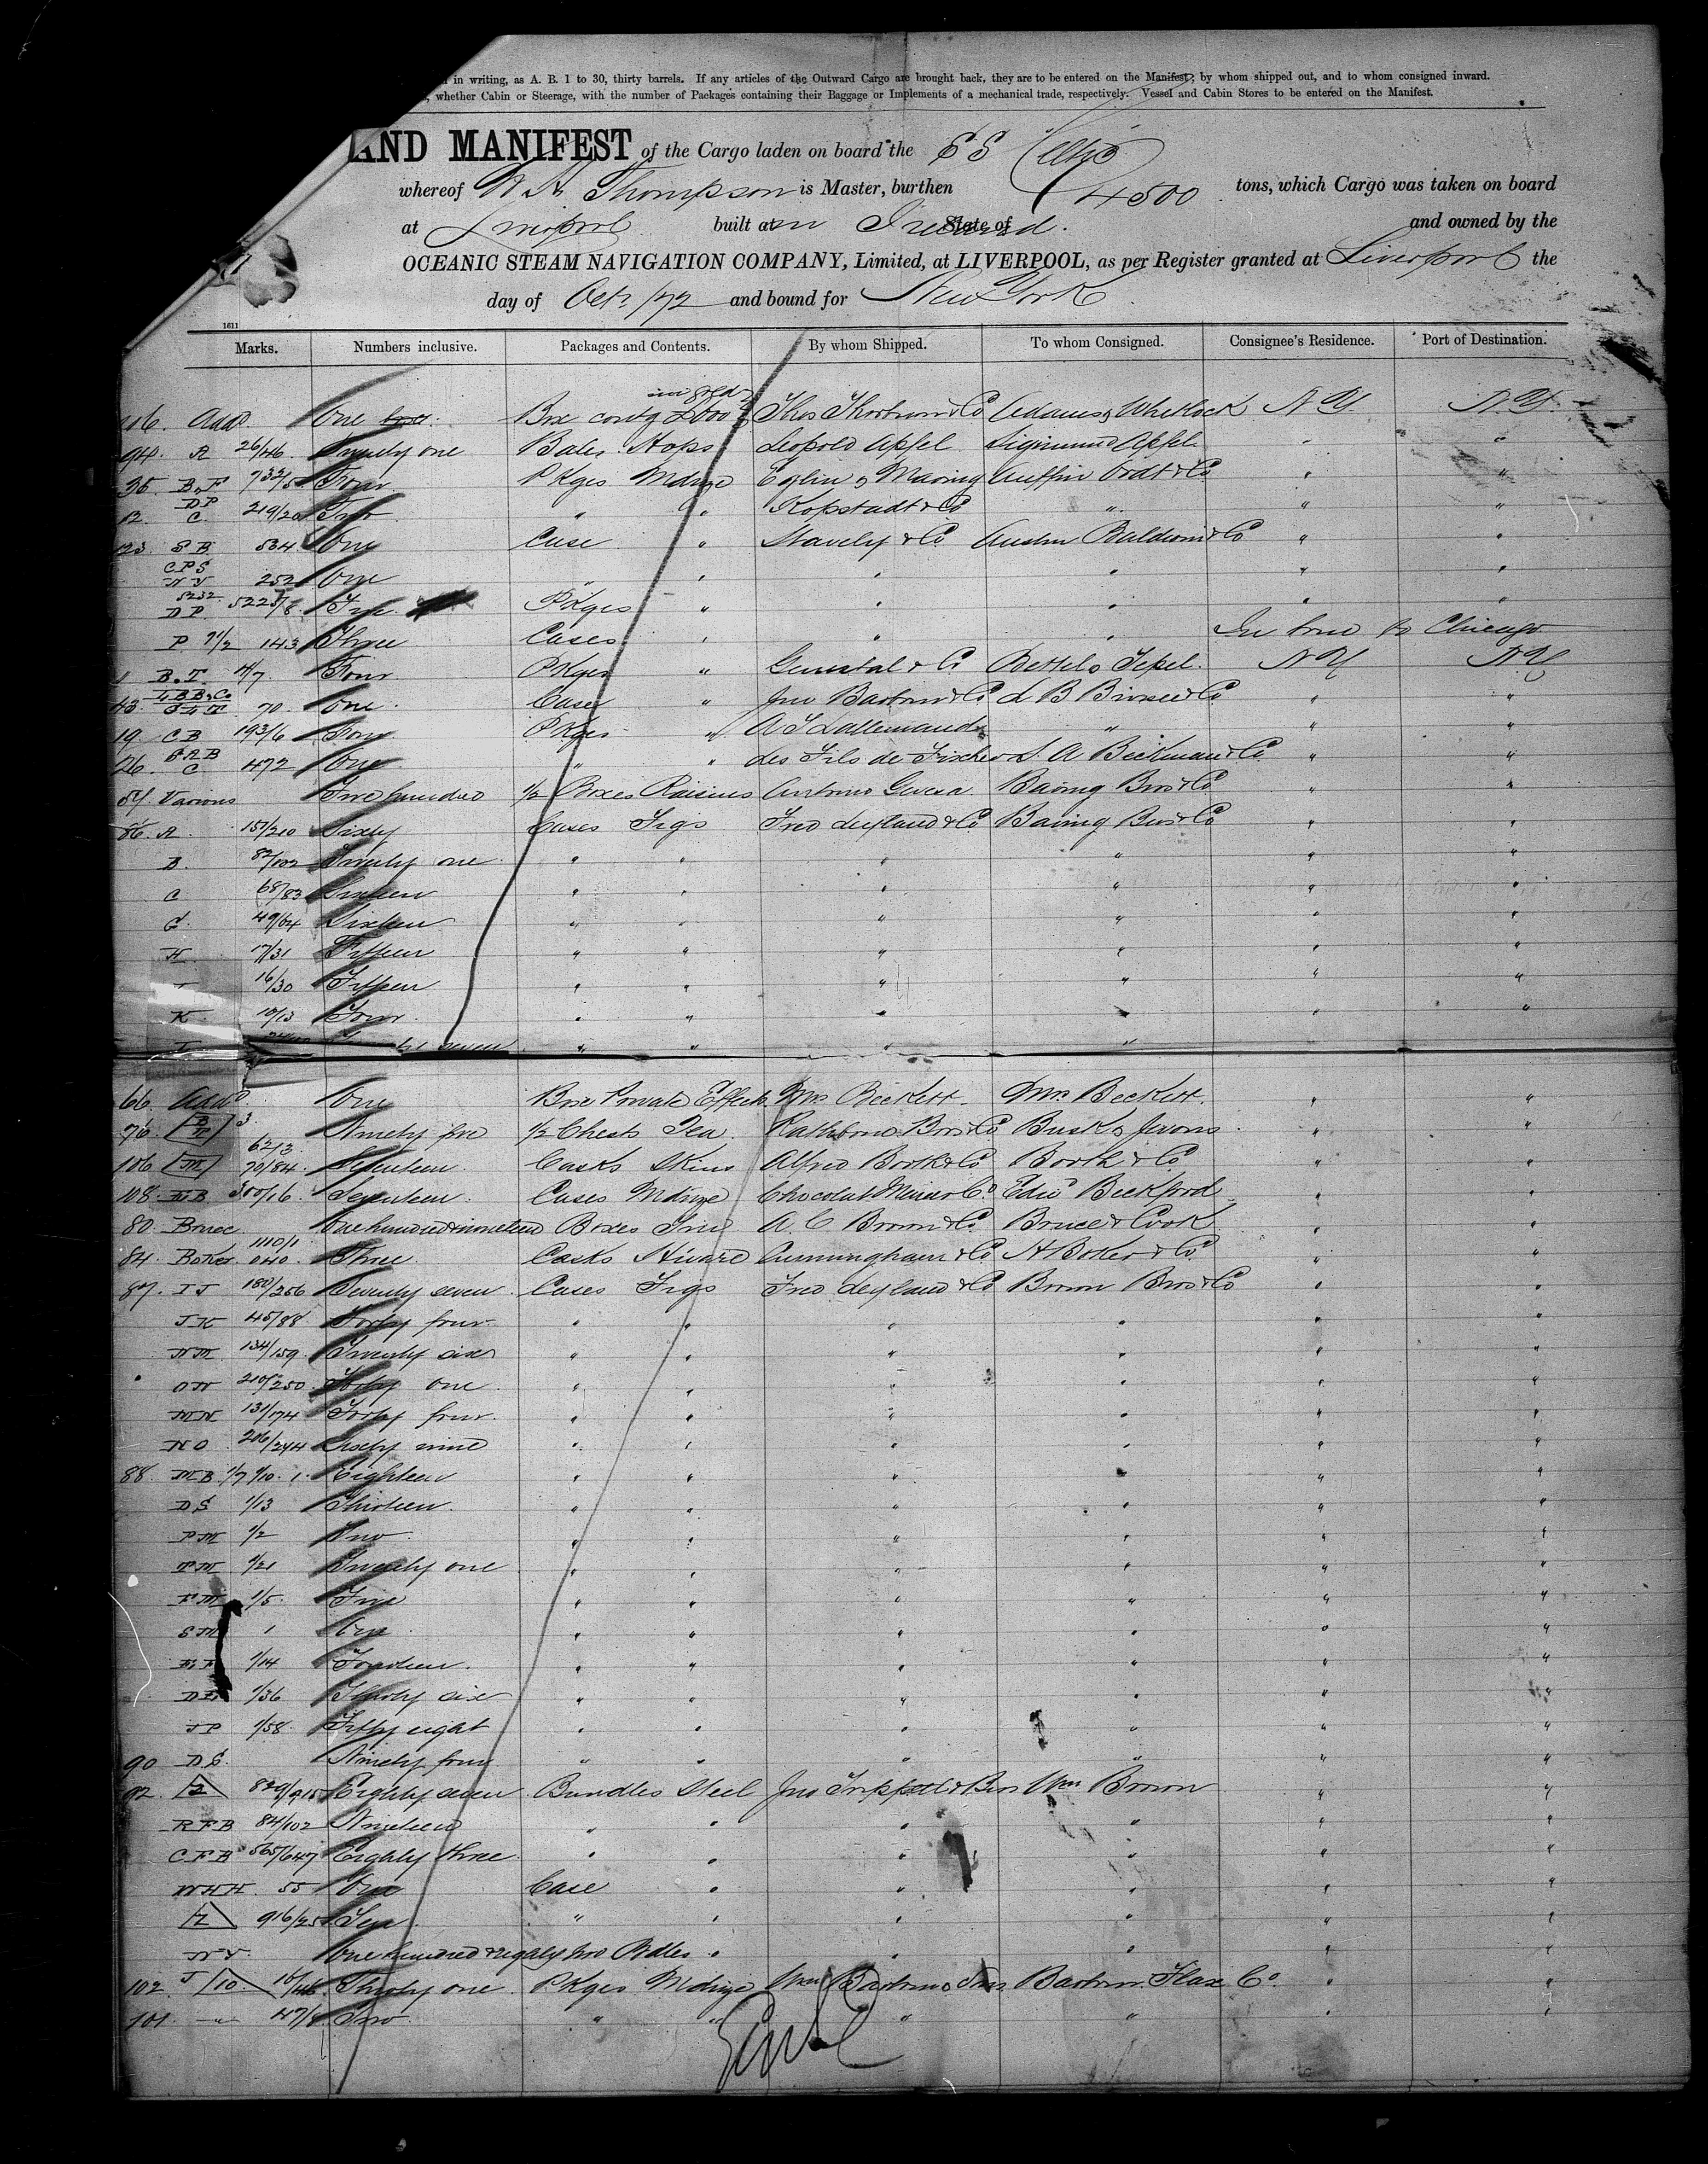 in writing, as A. B. 1 to 30, thirty barrels. If any articles of the Outward Cargo are brought back, they are to be entered on the Manifest; by whom shipped out, and to whom consigned inward.
whether Cabin or Steerage, with the number of Packages containing their Baggage or Implements of a mechanical trade, respectively. Vessel and Cabin Stores to be entered on the Manifest.
AND MANIFEST of the Cargo laden on board the SS Celtic
whereof Thompson is Master, burthen 4500 tons, which Cargo was taken on board
at Liverpool built at in Ireland. State of and owned by the
OCEANIC STEAM NAVIGATION COMPANY, Limited, at LIVERPOOL, as per Register granted at Liverpool the
day of Oct. /72 and bound for New York
1611
Marks. Numbers inclusive. Packages and Contents. By whom Shipped. To whom Consigned. Consignee's Residence. Port of Destination.
116. Addd One box Box in gold Adams & Whitlock N.Y. N.Y.
94. A 26/46 Twenty one Bales Hops Leopold Apfel Sigmund Apfel " "
35. Four Pkges Mdnze " "
12. C. 219/20 Two " " Kopstadt & Co " " "
123. S B 534 One Case " Stavely & Co Austin Baldwin & Co " "
CPS
NY 252 One " " " " " "
5232
DP 5225/8 Five Pkges " " " " "
P 143 Three Cases " " " In bond to Chicago
1 B.T. 4/7 Four Pkges " NY NY
43. 70 One Case " Jno Barbour & Co " "
19 CB 193/6 Four Pkges " " " "
26. C. 472 One " " les Fils de Fischer S. A Beekman & Co " "
54 Various Five hundred 1/2 Boxes Raisins Baring Bros & Co " "
86. A. 151/210 Sixty Cases Figs Fred Leyland & Co Baring Bros & Co " "
B. 82/102 Twenty one " " " " " "
C 68/83 Sixteen " " " " " "
G. 49/64 Sixteen " " " " " "
H. 17/31 Fifteen " " " " " "
16/30 Fifteen " " " " " "
K 10/13 Four " " " " " "
seven " " " "
66. Addd. One Box Private Effects Mrs Beckett. Mrs Beckett. " "
76. Ninety five 1/2 Chests Tea Rathbone Bros & Co Busk & Jevons " "
62/3
106 M 70/84 Seventeen Casks Skins Alfred Booth & Co Booth & Co " "
108. 300/16 Seventeen Cases Mdnze Chocolat Menier Co Edwd Beckford " "
80. Bruce One hundred & nineteen Boxes A C Brown & Co Bruce & Cook " "
1110/1
84. Boker 040 Three Casks Cunningham & Co H Boker & Co " "
87. IJ 180/256 Seventy seven Cases Figs Fred Leyland & Co Brown Bros & Co " "
JK 45/88 Forty four " " " " " "
NM 134/159 Twenty six " " " " " "
ON 210/250 Forty one " " " " " "
MN 131/174 Forty four " " " " " "
NO 206/244 nine " " " " " "
88. MB 1/7 1/10. 1. Eighteen " " " " " "
DS 1/13 Thirteen " " " " " "
PM 1/2 Two " " " " " "
TM 1/21 Twenty one " " " " " "
1/5 Five " " " " " "
SM 1 One " " " " " "
1/14 Fourteen " " " " " "
1/36 Thirty six " " " " " "
JP 1/58 Fifty eight " " " " " "
90 DS. Ninety four " " " " " "
92. 2 829/915 Eighty seven Bundles Steel Wm Brown " "
RFB 84/102 Nineteen " " " " " "
CFB 565/647 Eighty three " " " " " "
WHH 55 One Case " " " " "
2 916/25 Ten " " " " " "
NY One hundred & eighty two Bdles " " " " "
102. J 10 16/46 Thirty one Pkges Mdnze Wm Barbour & Sons Barbour Flax Co. " "
101. " 47/8 Two " " " " " "